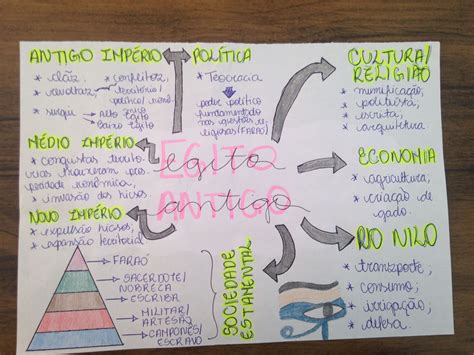 ANTIGO IMPÉRIO
* clãs;
* revoltas;
* conflitos;
* território/
político/econô.
* surgiu
Alto Egito
Baixo Egito
POLÍTICA
* Teocracia
poder político
fundamentado
nas questões re-
ligiosas (FARAÓ)
CULTURA/
RELIGIÃO
* mumificação;
* politeísta;
* escrita;
* arquitetura
MÉDIO IMPÉRIO
* conquistas territo-
riais trouxeram pros-
peridade econômica;
* invasão dos hicsos
EGITO
egito
ANTIGO
antigo
ECONOMIA
* agricultura;
* criação de
gado.
NOVO IMPÉRIO
* expulsão hicsos;
* expansão territorial
RIO NILO
* transporte;
* consumo;
* irrigação;
* defesa.
SOCIEDADE
ESTAMENTAL
FARAÓ
SACERDOTE/
NOBREZA
ESCRIBA
MILITAR/
ARTESÃO
CAMPONÊS/
ESCRAVO